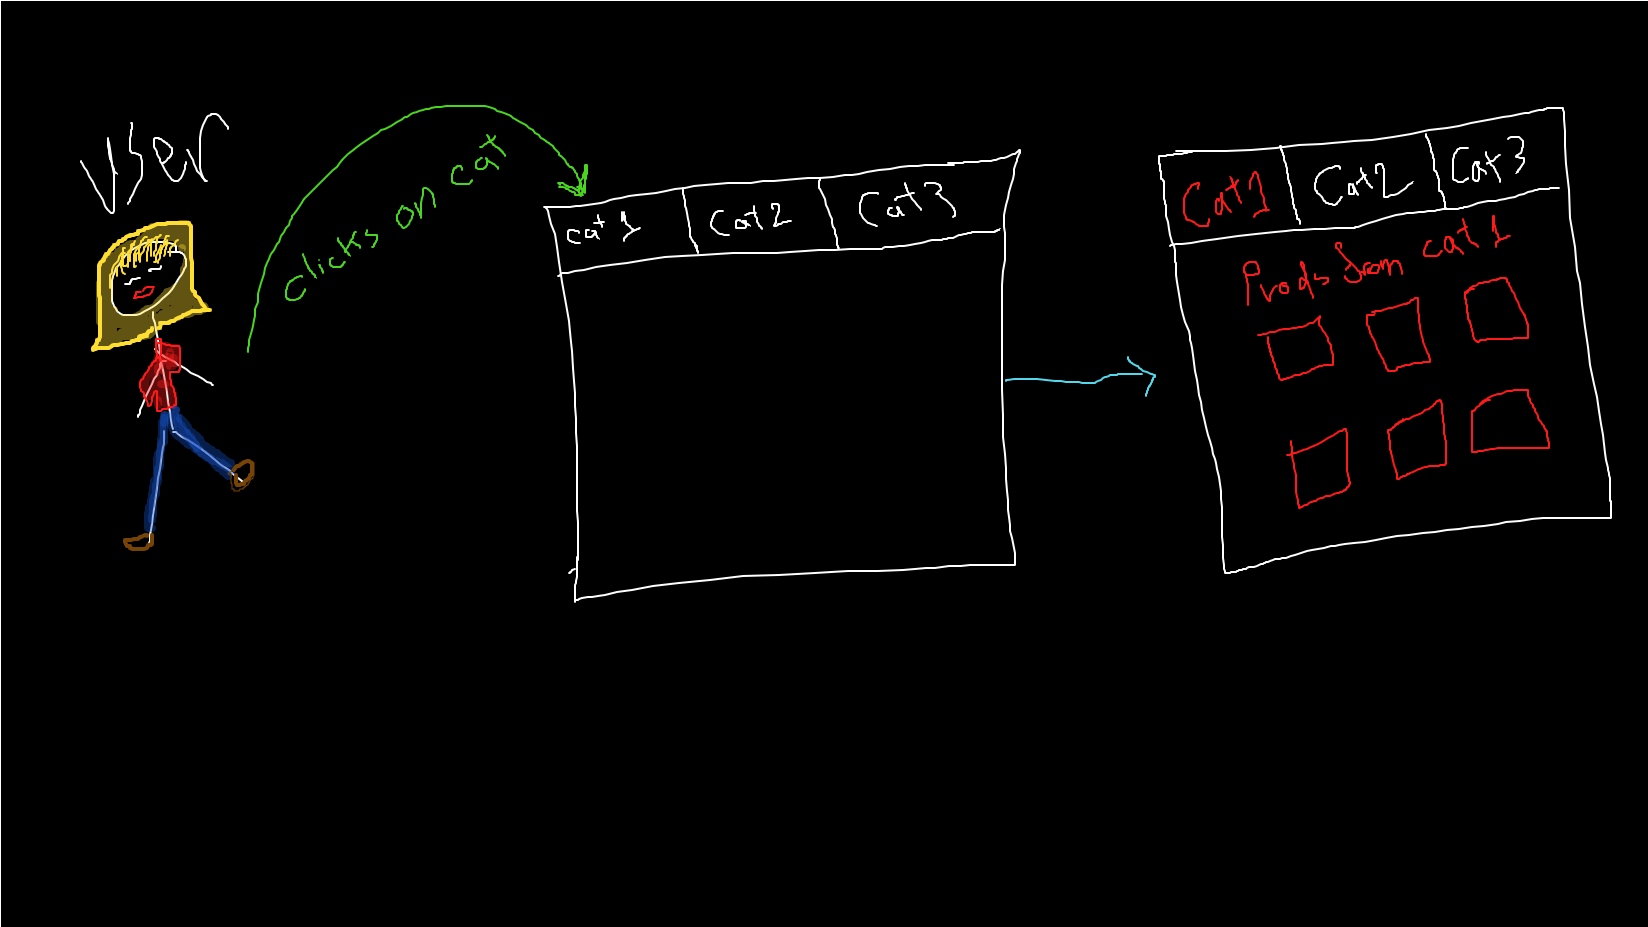 User
clicks on cat
cat 1
Cat2
Cat3
Cat1
Cat2
Cat3
Prods from cat 1